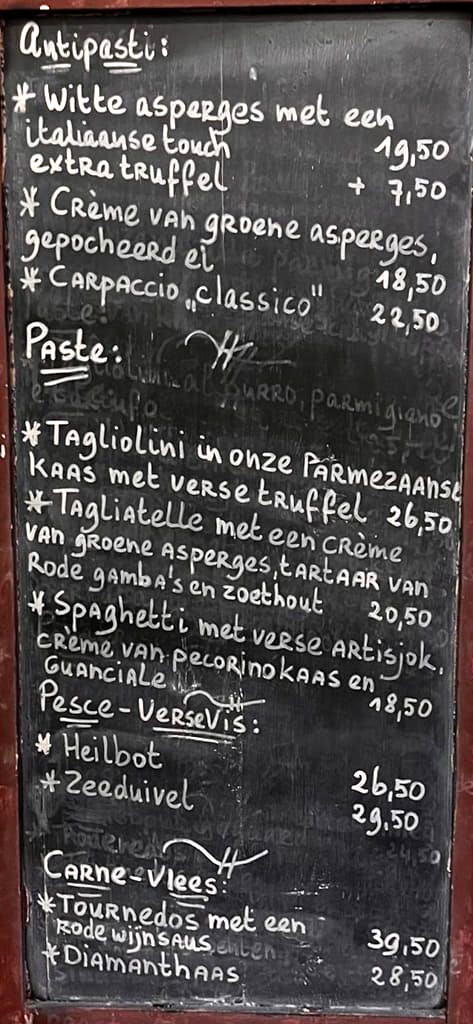 Antipasti:
* Witte asperges met een
italiaanse touch 19,50
extra truffel + 7,50
* Crème van groene asperges,
gepocheerd ei 18,50
* Carpaccio „classico" 22,50
Paste:
* Tagliolini in onze Parmezaanse
kaas met verse truffel 26,50
* Tagliatelle met een crème
van groene asperges, tartaar van
Rode gamba's en zoethout 20,50
* Spaghetti met verse artisjok,
crème van pecorino kaas en
guanciale 18,50
Pesce-Verse Vis:
* Heilbot 26,50
* Zeeduivel 29,50
Carne-Vlees:
* Tournedos met een
Rode wijnsaus 39,50
* Diamanthaas 28,50